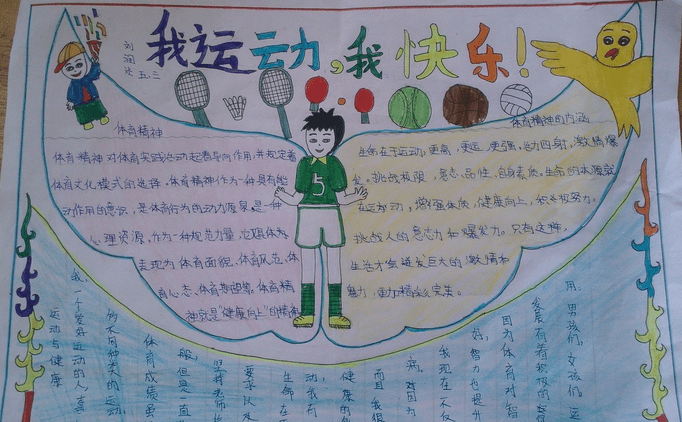 我运动,我快乐!
刘润冰
五.三
体育精神
体育精神对体育实践活动起着导向作用,并规定着
体育文化模式的选择。体育精神作为一种具有能
动作用的意识,是体育行为的动力源泉,是一种
心理资源,作为一种规范力量,它体
表现为体育面貌、体育风范、体
育心态、体育期望等。体育精
神就是"健康向上"的精神
5
体育精神的内涵
生命在于运动,更高,更远,更强,活力四射,激情爆
发。挑战极限,意志,品性,自身素质。生命的本源就
在运动,增强体质,健康向上,积极努力。
挑战人的意志力和爆发力。只有这样,
生活才能迸发巨大的激情和
魅力,更加精彩,完美。
用。男孩们,女孩们,运
发展有着积极的
因为体育对智
好,智力也提升
我现在不仅
病。
而且我很
健康的
动,我有
生命在
要求以及
坚持
般,但是一直
体育成绩虽
的不同种类的运动
我,一个爱好运动的人,真
运动与健康